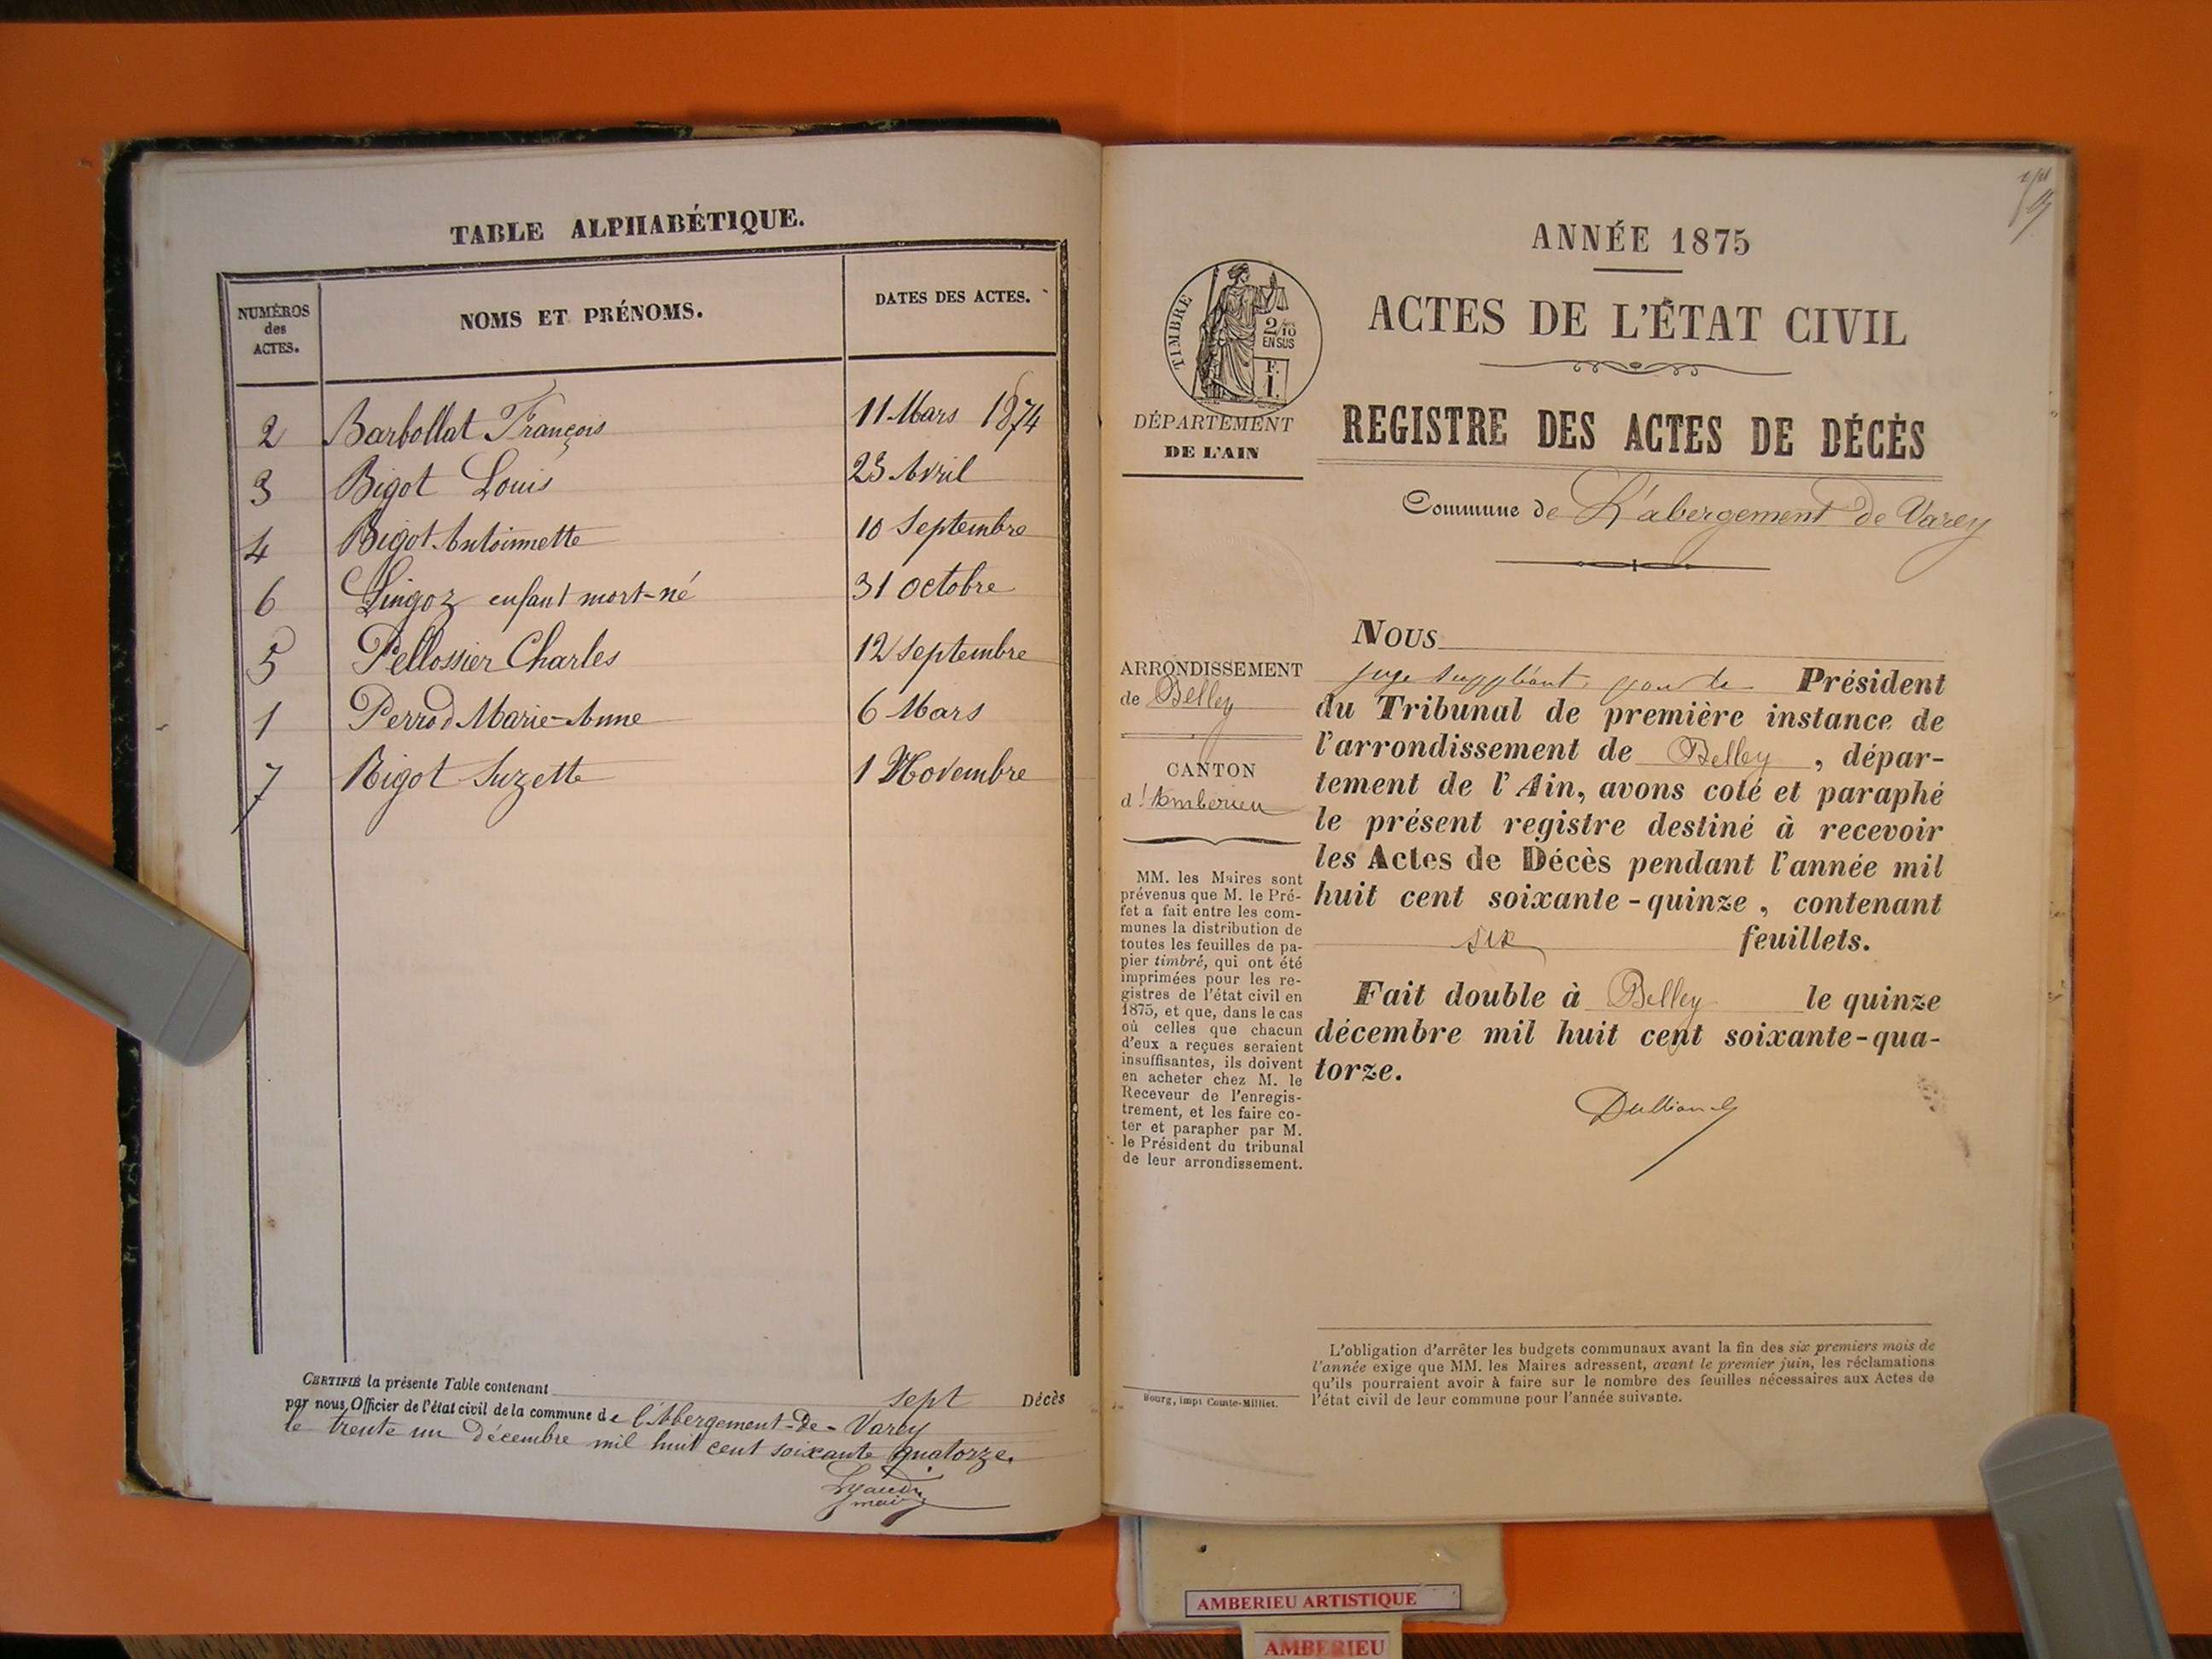 TABLE ALPHABÉTIQUE.
NUMÉROS
des
ACTES.
NOMS ET PRÉNOMS.
DATES DES ACTES.
2 Barbollat François 11 Mars 1874
3 Bigot Louis 23 Avril
4 Bigot Antoinnette 10 Septembre
6 Lingoz enfant mort-né 31 octobre
5 Pellossier Charles 12 septembre
1 Perrod Marie-Anne 6 Mars
7 Rigot Suzette 1 Novembre
CERTIFIÉ la présente Table contenant sept Décès
par nous Officier de l'état civil de la commune de l'Abergement-de-Varey
le trente un décembre mil huit cent soixante quatorze.
maire
ANNÉE 1875
TIMBRE
2/10
EN SUS
F.
1.
ACTES DE L'ÉTAT CIVIL
DÉPARTEMENT
DE L'AIN
REGISTRE DES ACTES DE DÉCÈS
Commune de L'abergement de Varey
ARRONDISSEMENT
de Belley
CANTON
d'Amberieu
MM. les Maires sont
prévenus que M. le Pré-
fet a fait entre les com-
munes la distribution de
toutes les feuilles de pa-
pier timbré, qui ont été
imprimées pour les re-
gistres de l'état civil en
1875, et que, dans le cas
où celles que chacun
d'eux a reçues seraient
insuffisantes, ils doivent
en acheter chez M. le
Receveur de l'enregis-
trement, et les faire co-
ter et parapher par M.
le Président du tribunal
de leur arrondissement.
Bourg, imp. Comte-Milliet.
Nous
juge suppléant, pour le Président
du Tribunal de première instance de
l'arrondissement de Belley, dépar-
tement de l'Ain, avons coté et paraphé
le présent registre destiné à recevoir
les Actes de Décès pendant l'année mil
huit cent soixante-quinze, contenant
six feuillets.
Fait double à Belley le quinze
décembre mil huit cent soixante-qua-
torze.
L'obligation d'arrêter les budgets communaux avant la fin des six premiers mois de
l'année exige que MM. les Maires adressent, avant le premier juin, les réclamations
qu'ils pourraient avoir à faire sur le nombre des feuilles nécessaires aux Actes de
l'état civil de leur commune pour l'année suivante.
AMBERIEU ARTISTIQUE
AMBERIEU